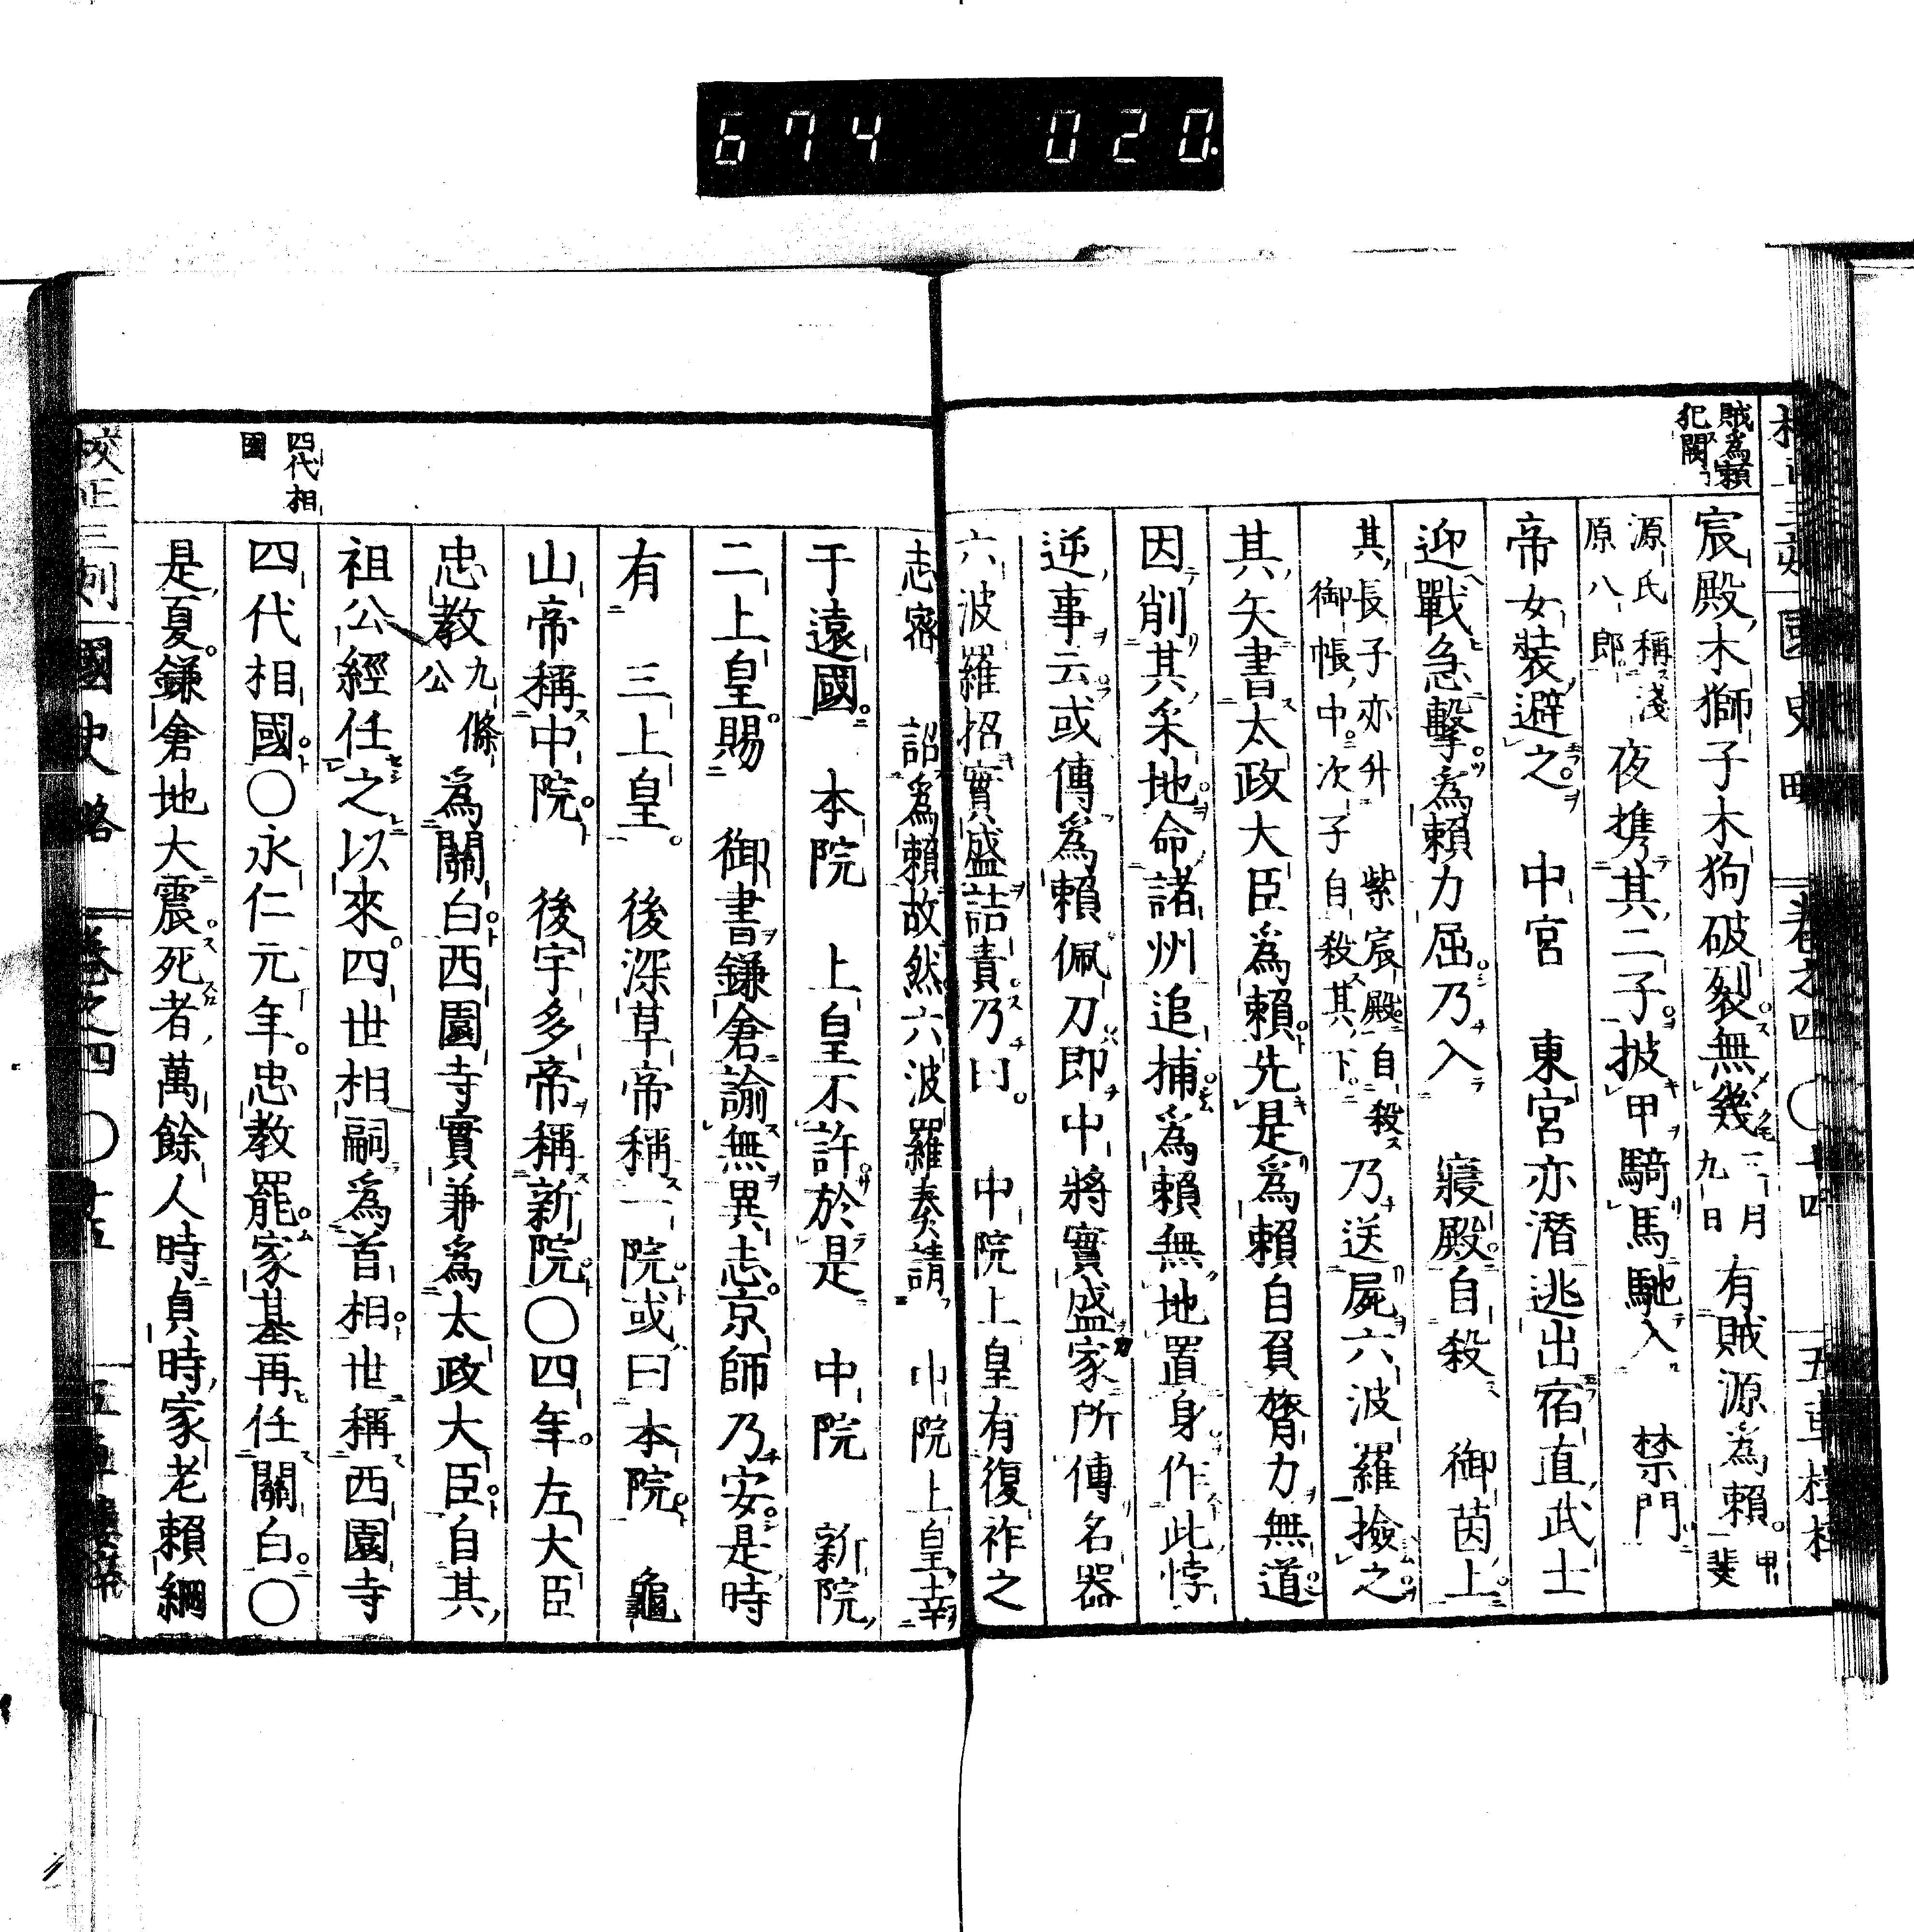 674 020
賊為賴
犯闕
國史略 卷之四 〇 十四 五車樓梓
宸殿木獅子木狗破裂無幾二月九日有賊源為賴甲斐
源氏稱淺原八郎夜携其二子披甲騎馬馳入 禁門
帝女裝避之 中宮 東宮亦潛逃出宿直武士
迎戰急擊為賴力屈乃入 寢殿自殺 御茵上
其長子亦升 紫宸殿自殺御帳中次子自殺其下乃送屍六波羅撿之
其矢書太政大臣為賴先是為賴自負膂力無道
因削其采地命諸州追捕為賴無地置身作此悖
逆事云或傳為賴佩刀即中將實盛家所傳名器
六波羅招實盛詰責乃曰 中院上皇有復祚之
志密 詔為賴故然六波羅奏請 中院上皇幸
于遠國 本院 上皇不許於是 中院 新院
二上皇賜 御書鎌倉諭無異志京師乃安是時
有 三上皇 後深草帝稱一院或曰本院 龜
山帝稱中院 後宇多帝稱新院〇四年左大臣
忠教九條公為關白西園寺實兼為太政大臣自其
祖公經任之以來四世相嗣為首相世稱西園寺
四代相國〇永仁元年忠教罷家基再任關白〇
是夏鎌倉地大震死者萬餘人時貞時家老賴綱
四代相
國
校正三刻 國史略 卷之四 〇 十五 五車樓梓